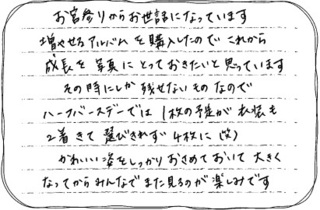 お宮参りからお世話になっています
増やせるアルバムを購入したので これから
成長を写真にとっておきたいと思っています
その時にしか残せないものなので
ハーフバースデーでは 1枚の予定が 衣装も
2着きて 選びきれず 4枚に (笑)
かわいい姿をしっかりおさめておいて 大きく
なってからみんなでまた見るのが楽しみです